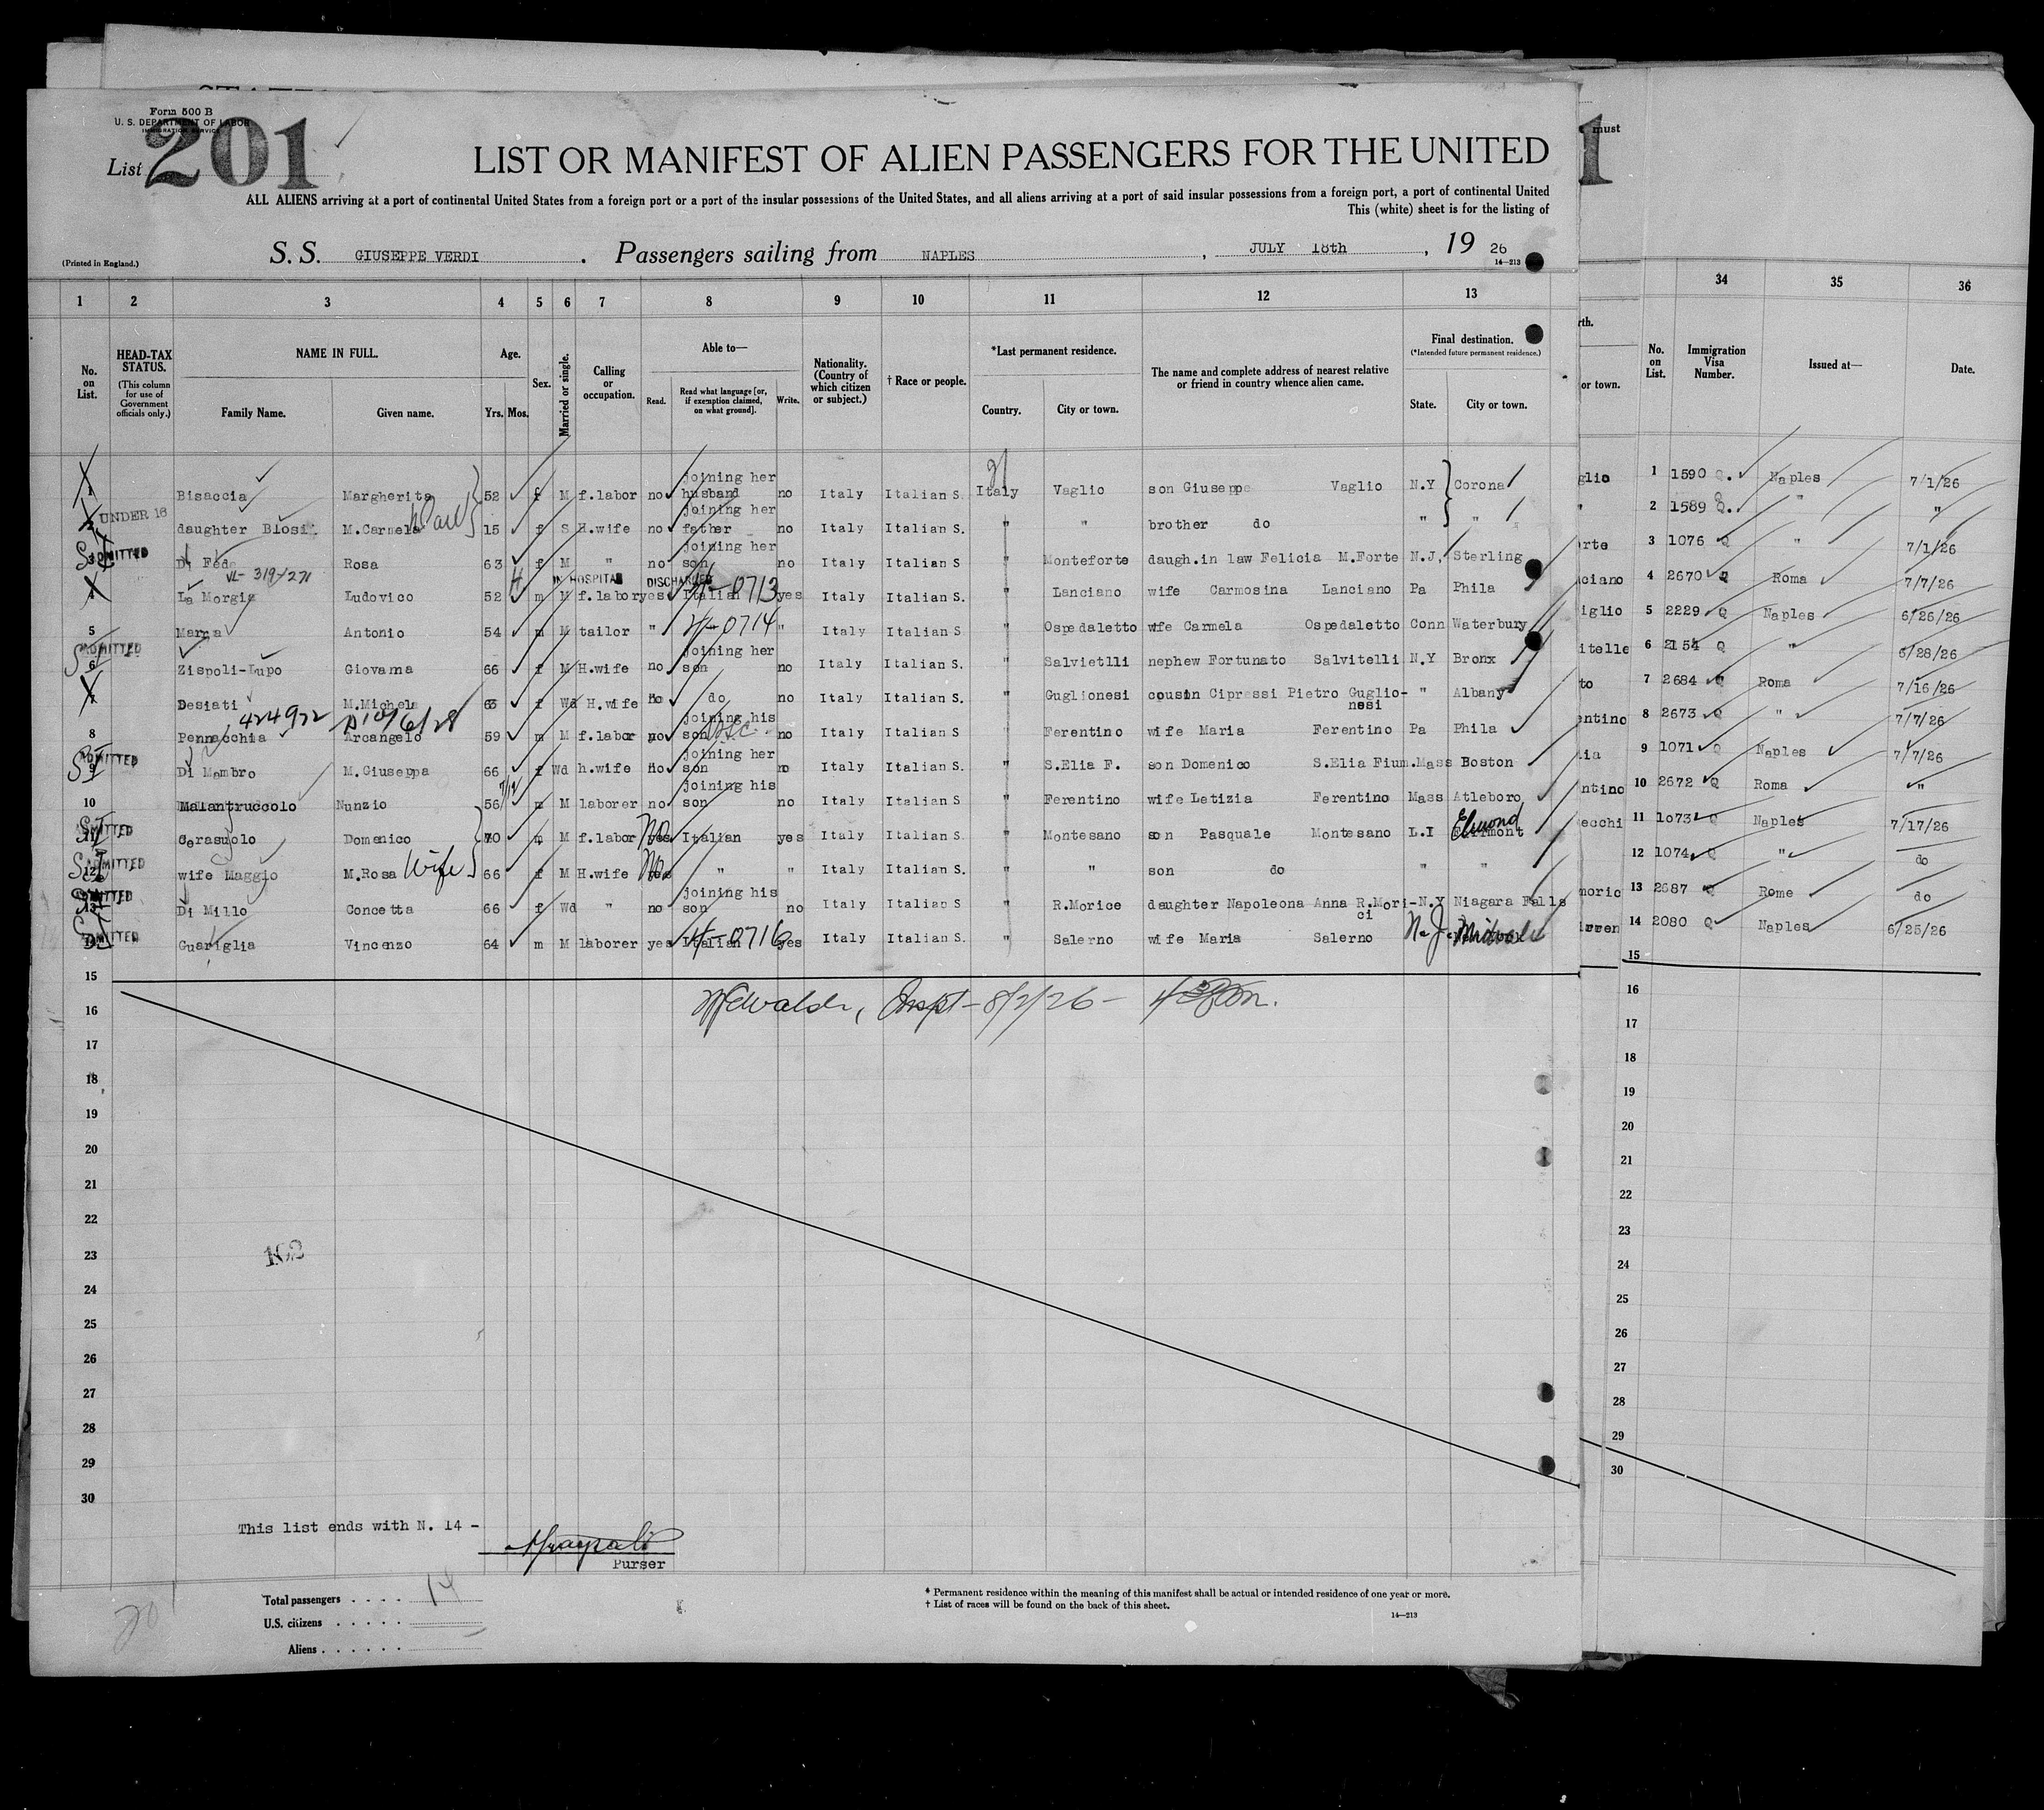 Form 500 B
U. S. DEPARTMENT OF LABOR
IMMIGRATION SERVICE
List 201
LIST OR MANIFEST OF ALIEN PASSENGERS FOR THE UNITED
ALL ALIENS arriving at a port of continental United States from a foreign port or a port of the insular possessions of the United States, and all aliens arriving at a port of said insular possessions from a foreign port, a port of continental United
This (white) sheet is for the listing of
must
1
(Printed in England.)
S. S. GIUSEPPE VERDI . Passengers sailing from NAPLES , JULY 18th , 19 26
14—213
1 2 3 4 5 6 7 8 9 10 11 12 13 34 35 36
No. on List.
HEAD-TAX STATUS.
(This column for use of Government officials only.)
NAME IN FULL.
Family Name. Given name.
Age.
Yrs. Mos.
Sex.
Married or single.
Calling or occupation.
Able to—
Read.
Read what language [or, if exemption claimed, on what ground].
Write.
Nationality. (Country of which citizen or subject.)
† Race or people.
*Last permanent residence.
Country. City or town.
The name and complete address of nearest relative or friend in country whence alien came.
Final destination.
(*Intended future permanent residence.)
State. City or town.
rth.
or town.
No. on List.
Immigration Visa Number.
Issued at—
Date.
1 Bisaccia Margherita 52 f M f.labor no joining her husband no Italy Italian S. Italy Vaglio son Giuseppe Vaglio N.Y Corona glio 1 1590 Q. Naples 7/1/26
2 UNDER 16 daughter Blosi M.Carmela 15 f S H.wife no joining her father no Italy Italian S. " " brother do " " " 2 1589 Q. " "
3 ADMITTED Di Fede Rosa 63 f M " no joining her son no Italy Italian S. " Monteforte daugh.in law Felicia M.Forte N.J, Sterling orte 3 1076 Q " 7/1/26
VL- 319/271 H IN HOSPITAL DISCHARGED
4 La Morgia Ludovico 52 m M f.labor yes Italian 4-0713 yes Italy Italian S. " Lanciano wife Carmosina Lanciano Pa Phila nciano 4 2670 Q Roma 7/7/26
5 Marra Antonio 54 m M tailor " 4-0714 " Italy Italian S " Ospedaletto wfe Carmela Ospedaletto Conn Waterbury iglio 5 2229 Q Naples 6/26/26
6 ADMITTED Zispoli-Lupo Giovama 66 f M H.wife no joining her son no Italy Italian S. " Salvietlli nephew Fortunato Salvitelli N.Y Bronx itelle 6 2154 Q " 6/28/26
7 Desiati M.Michela 63 f Wd H.wife no do no Italy Italian S. " Guglionesi cousin Cipressi Pietro Guglio- nesi " Albany to 7 2684 Q Roma 7/16/26
424922 10/6/28
8 Pennacchia Arcangelo 59 m M f.labor no joining his son no Italy Italian S " Ferentino wife Maria Ferentino Pa Phila entino 8 2673 Q " 7/7/26
9 ADMITTED Di Mambro M.Giuseppa 66 f Wd h.wife no joining her son no Italy Italian S. " S.Elia F. son Domenico S.Elia Fium. Mass Boston lia 9 1071 Q Naples 7/7/26
10 Malantruccolo Nunzio 56 m M laborer no joining his son no Italy Italian S " Ferentino wife Letizia Ferentino Mass Atleboro ntino 10 2672 Q Roma "
11 ADMITTED Cerasuolo Domenico 70 m M f.labor yes No Italian yes Italy Italian S. " Montesano son Pasquale Montesano L.I Elmond ecchi 11 1073 Q Naples 7/17/26
12 ADMITTED wife Maggio M.Rosa Wife 66 f M H.wife yes No " " Italy Italian S. " " son do " " 12 1074 Q " do
13 ADMITTED Di Millo Concetta 66 f Wd " no joining his son no Italy Italian S " R.Morice daughter Napoleona Anna R.Mori- ci N.Y Niagara Falls moric 13 2687 Q Rome do
14 ADMITTED Guariglia Vincenzo 64 m M laborer yes Italian 4-0716 yes Italy Italian S. " Salerno wife Maria Salerno N.J. Midvale 14 2080 Q Naples 6/25/26
15 15
16 Inspt - 8/2/26 - 16
17 17
18 18
19 19
20 20
21 21
22 22
23 23
24 24
25 25
26 26
27 27
28 28
29 29
30 30
102
This list ends with N. 14 -
Purser
Total passengers . . . . 14
U.S. citizens . . . . .
Aliens . . . . . .
* Permanent residence within the meaning of this manifest shall be actual or intended residence of one year or more.
† List of races will be found on the back of this sheet.
14—213